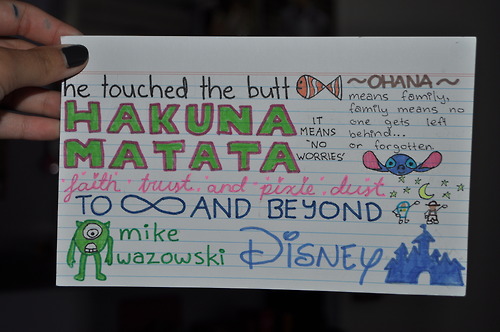 he touched the butt
~OHANA~
means family,
family means no
one gets left
behind...
or forgotten
HAKUNA
MATATA
IT
MEANS
"NO
WORRIES"
faith. trust. and pixie dust.
TO ∞ AND BEYOND
mike
wazowski
DISNEY